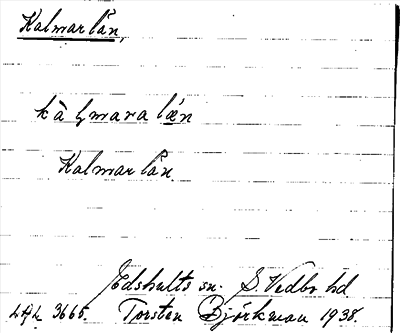 Kalmar län,
kàl̥mara lǽn
Kalmar län.
Edshults sn. S. Vedbo hd.
LAL 3665. Torsten Björkman 1938.